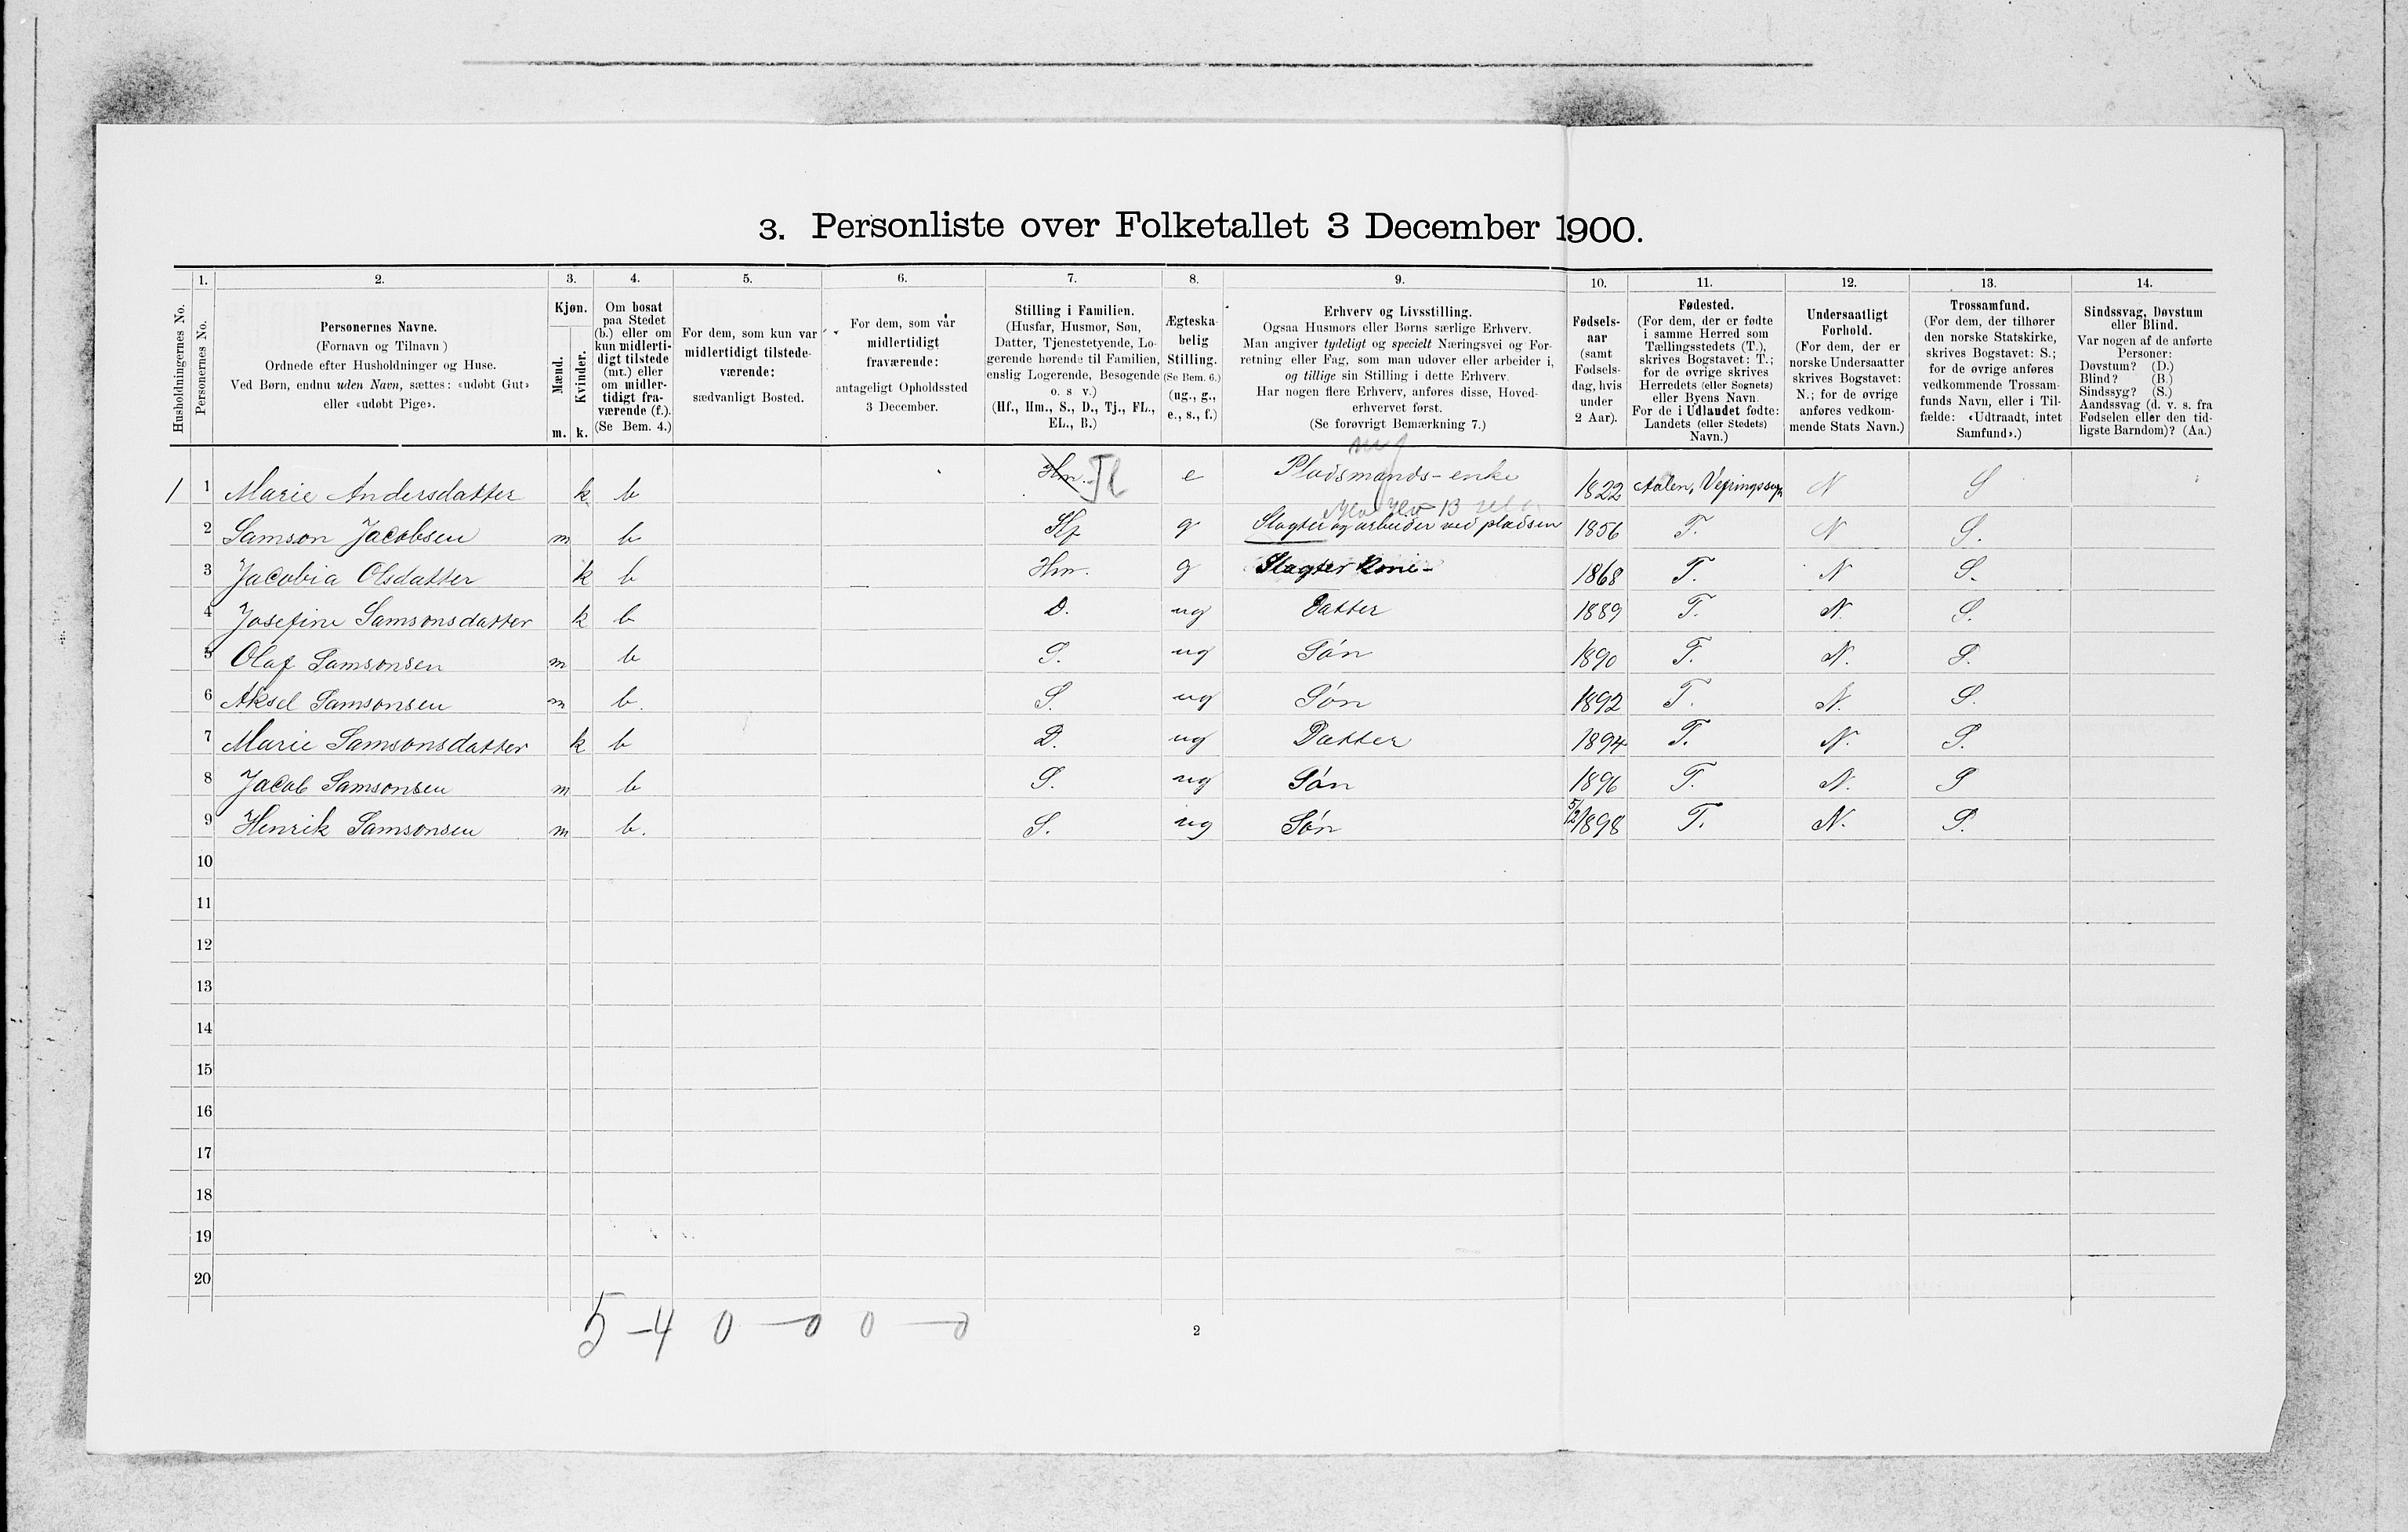 3. Personliste over Folketallet 3 December 1900.
1. 2. 3. 4. 5. 6. 7. 8. 9. 10. 11. 12. 13. 14.
Husholdningernes No.
Personernes No.
Personernes Navne.
(Fornavn og Tilnavn)
Ordnede efter Husholdninger og Huse.
Ved Børn, endnu uden Navn, sættes: «udøbt Gut»
eller «udøbt Pige».
Kjøn.
Mænd.
Kvinder.
m. k.
Om bosat
paa Stedet
(b.) eller om
kun midlerti-
digt tilstede
(mt.) eller
om midler-
tidigt fra-
værende (f.).
(Se Bem. 4.)
For dem, som kun var
midlertidigt tilstede-
værende:
sædvanligt Bosted.
For dem, som var
midlertidigt
fraværende:
antageligt Opholdssted
3 December.
Stilling i Familien.
(Husfar, Husmor, Søn,
Datter, Tjenestetyende, Lo-
gerende hørende til Familien,
enslig Logerende, Besøgende
o. s v.)
(Hf., Hm., S., D., Tj., FL.,
EL., B.)
Ægteska-
belig
Stilling.
(Se Bem. 6.)
(ug., g.,
e., s., f.)
Erhverv og Livsstilling.
Ogsaa Husmors eller Børns særlige Erhverv.
Man angiver tydeligt og specielt Næringsvei og For-
retning eller Fag, som man udøver eller arbeider i,
og tillige sin Stilling i dette Erhverv.
Har nogen flere Erhverv, anføres disse, Hoved-
erhvervet først.
(Se forøvrigt Bemærkning 7.)
Fødsels-
aar
(samt
Fødsels-
dag, hvis
under
2 Aar).
Fødested.
(For dem, der er fødte
i samme Herred som
Tællingsstedets (T.),
skrives Bogstavet: T.;
for de øvrige skrives
Herredets (eller Sognets)
eller Byens Navn.
For de i Udlandet fødte:
Landets (eller Stedets)
Navn.)
Undersaatligt
Forhold.
(For dem, der er
norske Undersaatter
skrives Bogstavet:
N.; for de øvrige
anføres vedkom-
mende Stats Navn.)
Trossamfund.
(For dem, der tilhører
den norske Statskirke,
skrives Bogstavet: S.;
for de øvrige anføres
vedkommende Trossam-
funds Navn, eller i Til-
fælde: «Udtraadt, intet
Samfund».)
Sindssvag, Døvstum
eller Blind.
Var nogen af de anførte
Personer:
Døvstum? (D.)
Blind? (B.)
Sindssyg? (S.)
Aandssvag (d. v. s. fra
Fødselen eller den tid-
ligste Barndom)? (Aa.)
1 1 Marie Andersdatter k b Hm. Fl e Pladsmands-enke 1822 N S
2 Samson Jacobsen m b Hf g Slagter og arbeider ved pladsen 1856 T. N S.
3 Jacobia Olsdatter k b Hm. g Slagter Kone- 1868 T. N S.
4 Josefine Samsonsdatter k b D. ug Datter 1889 T. N. S.
5 Olaf Samsonsen m b S. ug Søn 1890 T. N. S.
6 Aksel Samsonsen m b. S. ug Søn 1892 T. N. S.
7 Marie Samsonsdatter k b D. ug Datter 1894 T. N. S.
8 Jacob Samsonsen m b S. ug Søn 1896 T. N. S
9 Henrik Samsonsen m b. S. ug Søn 5/12 1898 T. N. S.
10
11
12
13
14
15
16
17
18
19
20
5-4 0-0 0-0
2